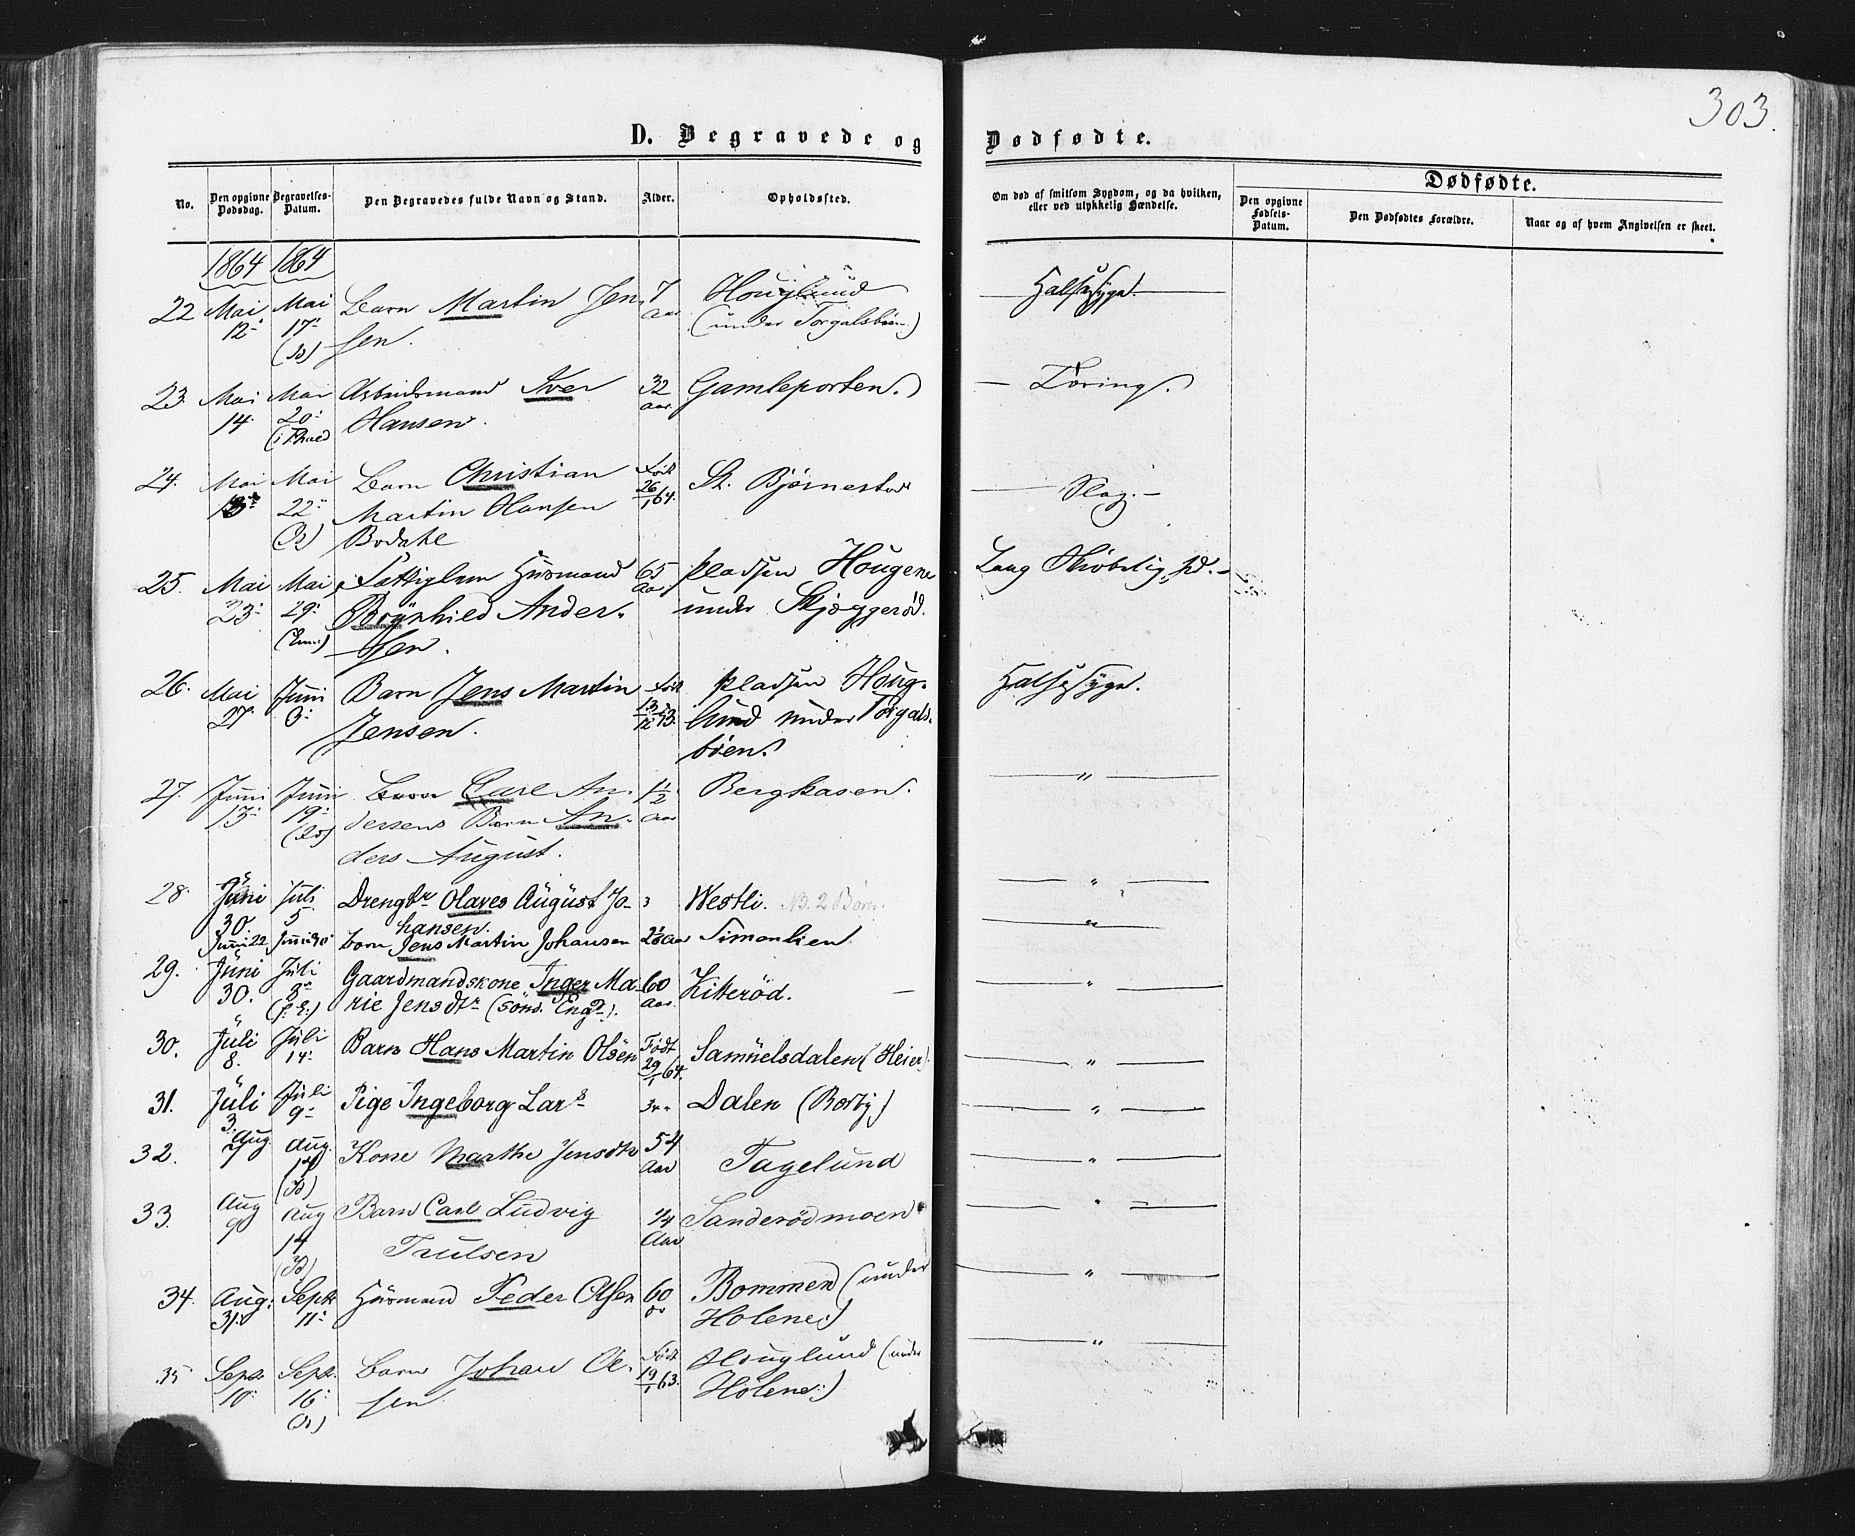 303.
D. Begravede og Dødfødte.
No. Den opgivne Dødsdag. Begravelses-Datum. Den Begravedes fulde Navn og Stand. Alder. Opholdssted. Om død af smitsom Sygdom, og da hvilken, eller ved ulykkelig Hændelse. Dødfødte.
Den opgivne Fødsels-Datum. Den Dødfødtes Forældre. Naar og af hvem Angivelsen er skeet.
1864 1864
22 Mai Mai Barn Martin Jen- 7 Houglund Halssyge.
12 17 sen. Aar (under Torgalsbøen)
23. Mai Mai Arbeidsmand Iver 32 Gamleporten. Tæring.
14. 20 Hansen. Aar.
24. Mai Mai Barn Christian Født St. Bjørnestad Slag.
22 Martin Hansen 26/1 64.
Bodahl
25. Mai Mai Fattiglem Husmand 65 Pladsen Hougene Lang
23 29 Brynhild Ander- Aar under Skjæggerød.
sen.
26. Mai Juni Barn Jens Martin Født Pladsen Houg- Halssyge.
27. 3 Jensen. lund under Torgals-
bøen.
27. Juni Juni Barn Carl An- 1½ Bergkasen. "
13 19 dersens Barn An- Aar
ders August.
28. Juni Juli Drengbr Olaves August Jo- 3 Westli. NB. 2 Børn. "
30. 5. hansen.
Juni 22 Juni 30 Barn Jens Martin Johansen Aar Simonlien "
29. Juni Juli Gaardmandskone Inger Ma- 60 Kitterød. — "
30. 8 rie Jensdtr (Sønd. Eng). Aar.
30. Juli Juli Barn Hans Martin Olsen Født Samuelsdalen (Heier). "
8. 14. 29/1 64.
31. Juli Juli Pige Ingeborg Lars Dalen (Borby) "
3. 9
32. Aug. Aug. Kone Marthe Jensdtr 54 Fagelund "
7 14 Aar
33. Aug Aug Barn Carl Ludvig 1/4 Sanderødmoen "
9 14 Trulsen Aar
34. Aug. Sept Husmand Peder Olsen 60 Bommen (under "
31. 11 Holene)
35 Sept. Sept. Barn Johan Ol- Født Houglund (under "
10 16 sen 19/1 63. Holene)